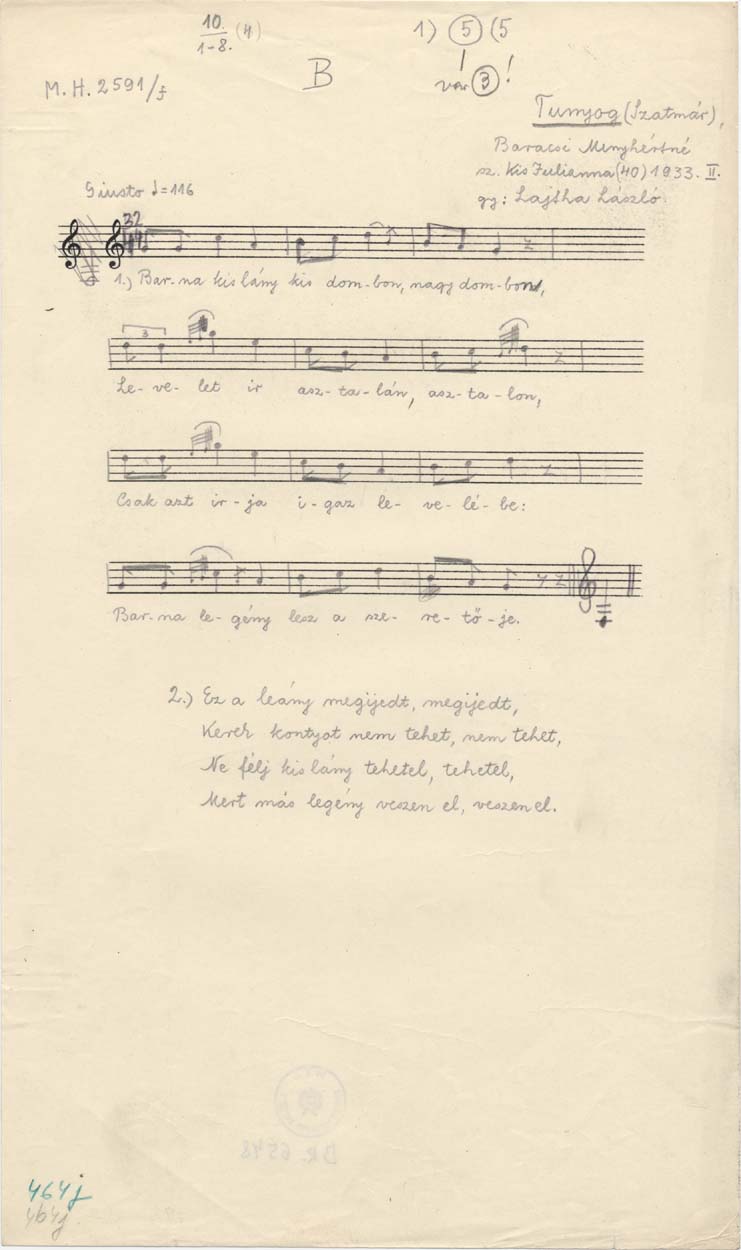 10. (4)
1-8.
1) 5 (5
B
var 3 !
M.H. 2591/f
Tunyog (Szatmár),
Baracsi Menyhértné
sz. Kis Julianna (40) 1933. II.
gy: Lajtha László.
Giusto ♩=116
1.) Bar-na kis lány kis dom-bon, nagy dom-bon,
3
Le-ve-let ir asz-ta-lán, asz-ta-lon,
Csak azt ir-ja i-gaz le-ve-lé-be:
Bar-na le-gény lesz a sze-re-tő-je.
2.) Ez a leány megijedt, megijedt,
Kerek kontyot nem tehet, nem tehet,
Ne félj kis lány tehetel, tehetel,
Mert más legény veszen el, veszen el.
BR. 6548
464j
464j